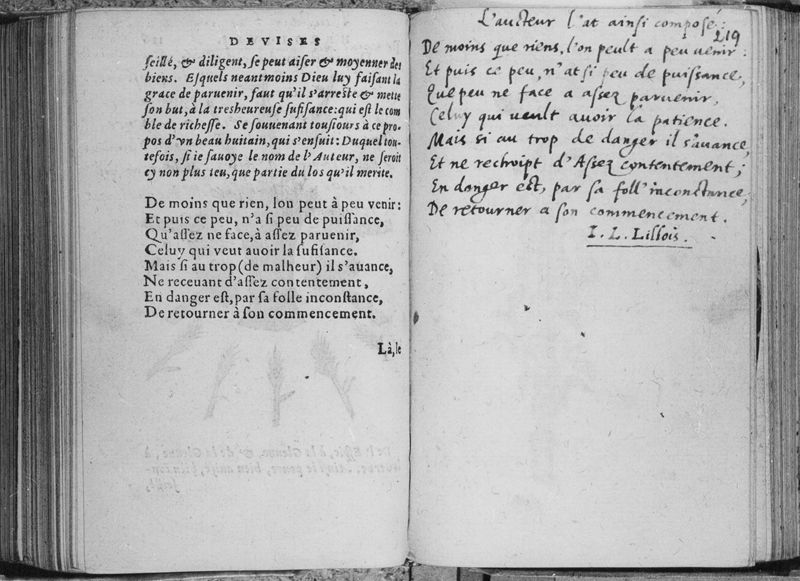 DEVISES
seillé, & diligent, se peut aiser & moyenner des
biens. Esquels neantmoins Dieu luy faisant la
grace de paruenir, faut qu'il s'arreste & mette
son but, à la tresheureuse sufisance: qui est le com
ble de richesse. Se souuenant tousiours à ce pro-
pos d'vn beau huitain, qui s'ensuit: Duquel tou-
tefois, si ie sauoye le nom de l'Auteur, ne seroit
cy non plus teu, que partie du los qu'il merite.
De moins que rien, lon peut à peu venir:
Et puis ce peu, n'a si peu de puissance,
Qu'assez ne face, à assez paruenir,
Celuy qui veut auoir la sufisance.
Mais si au trop (de malheur) il s'auance,
Ne receuant d'assez contentement,
En danger est, par sa folle inconstance,
De retourner à son commencement.
Là, le
L'aucteur l'at ainsi composé:
219
De moins que riens, l'on peult a peu venir:
Et puis ce peu, n'at si peu de puissance,
Que peu ne face a assez paruenir,
Celuy qui veult auoir la patience.
Mais si au trop de danger il s'auance,
Et ne rechoipt d'Assez contentement;
En danger est, par sa foll' inconstance,
De retourner a son commencement.
I. L. Lillois.